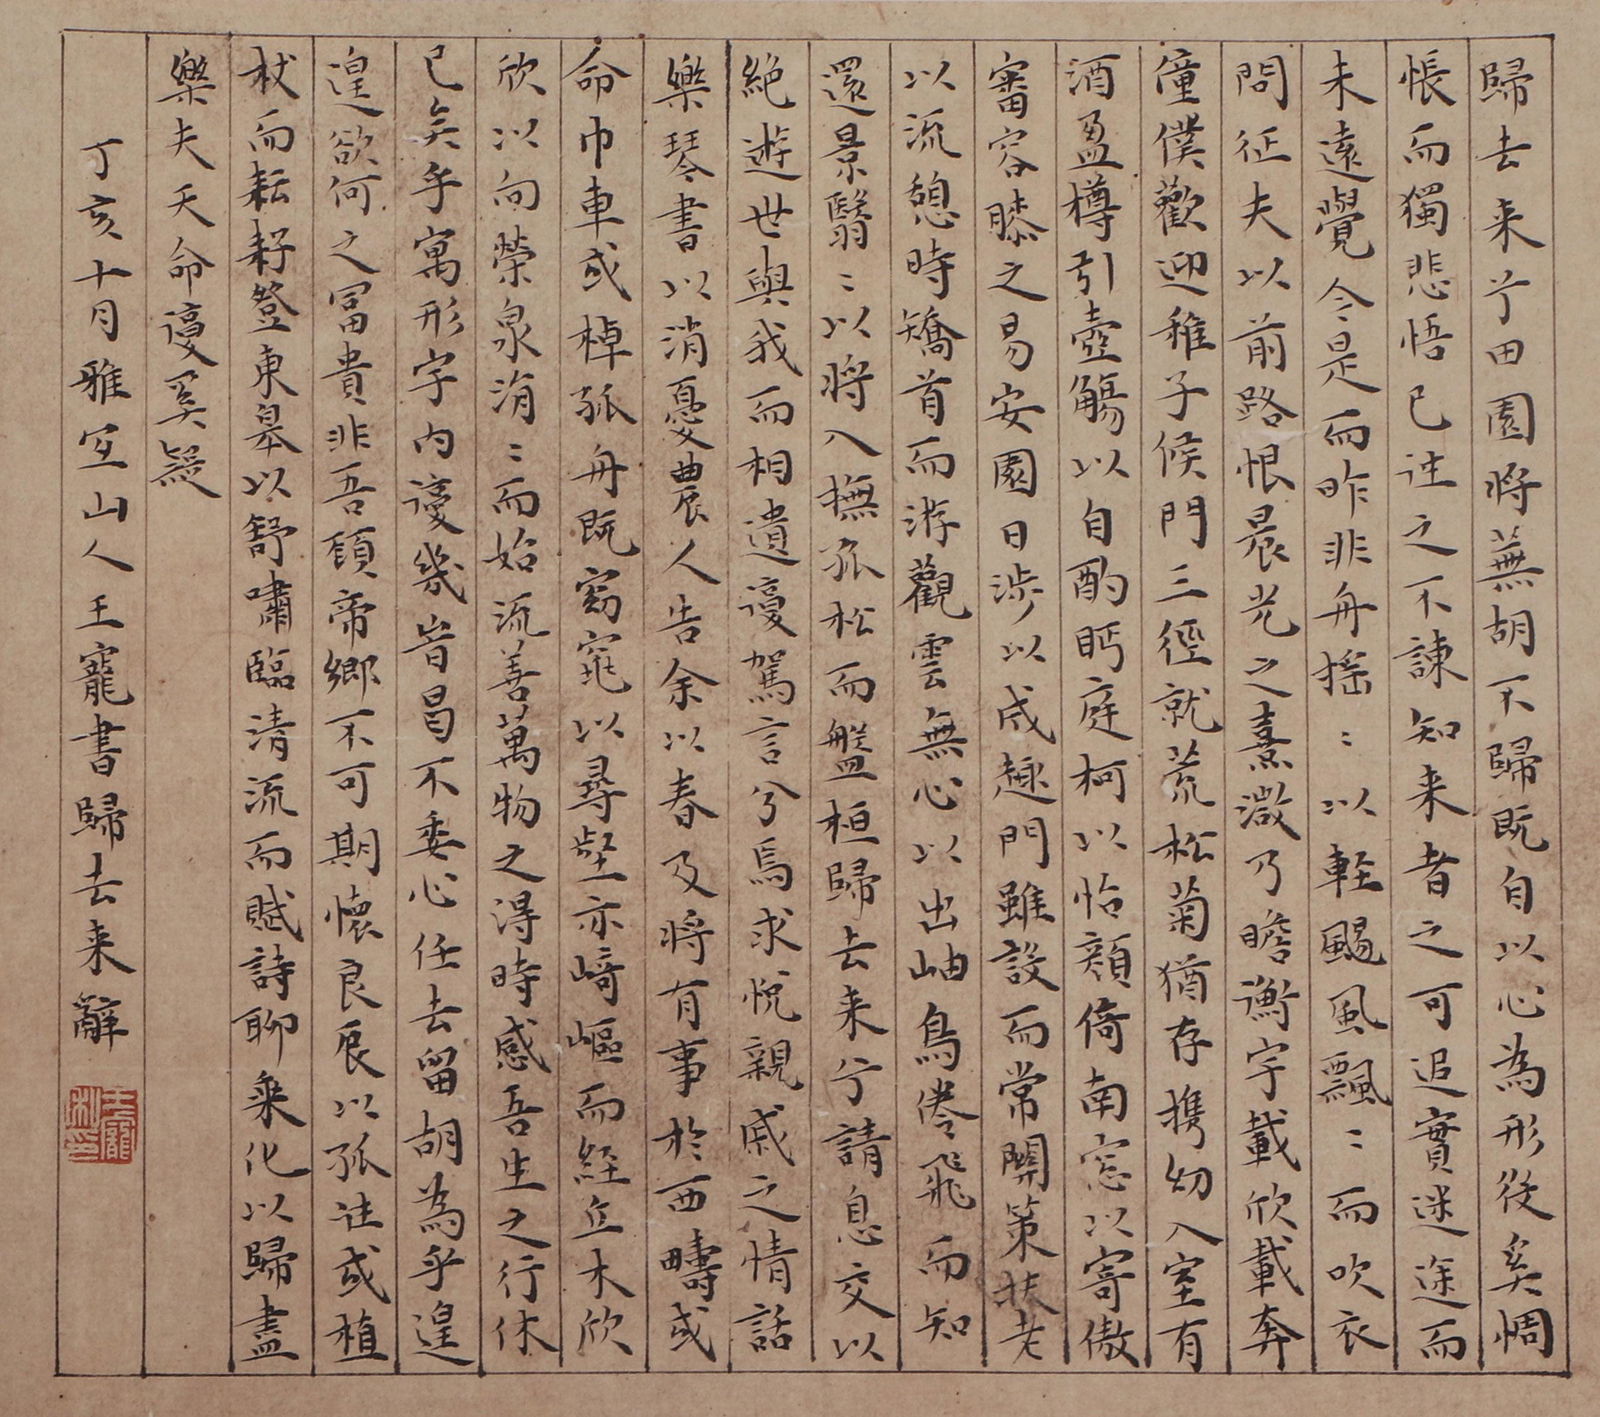 歸去来兮田園將蕪胡不歸既自以心為形役奚惆
悵而獨悲悟已往之不諫知来者之可追實迷途而
未遠覺今是而昨非舟摇〻以輕颺風飄〻而吹衣
問征夫以前路恨晨光之熹微乃瞻衡宇載欣載奔
僮僕歡迎稚子候門三徑就荒松菊猶存携幼入室有
酒盈樽引壺觴以自酌眄庭柯以怡顏倚南窓以寄傲
審容膝之易安園日渉以成趣門雖設而常關策扶老
以流憩時矯首而游觀雲無心以出岫鳥倦飛而知
還景翳〻以將入撫孤松而盤桓歸去来兮請息交以
絶遊世與我而相遺復駕言兮焉求悅親戚之情話
樂琴書以消憂農人告余以春及將有事於西疇或
命巾車或棹孤舟既窈窕以尋壑亦崎嶇而經丘木欣
欣以向榮泉涓〻而始流善萬物之得時感吾生之行休
已矣乎寓形宇内復幾昔曷不委心任去留胡為乎遑
遑欲何之冨貴非吾願帝鄉不可期懷良辰以孤往或植
杖而耘耔登東皋以舒嘯臨清流而賦詩聊乘化以歸盡
樂夫天命復奚疑
丁亥十月雅宜山人王寵書歸去来辭
王寵私印